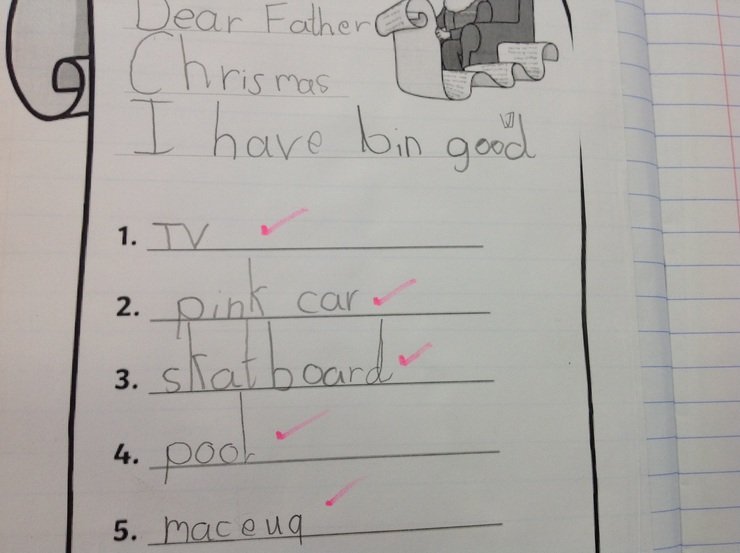 Dear Father
Chrismas
I have bin good
1. TV
2. pink car
3. skatboard
4. pool
5. maceuq